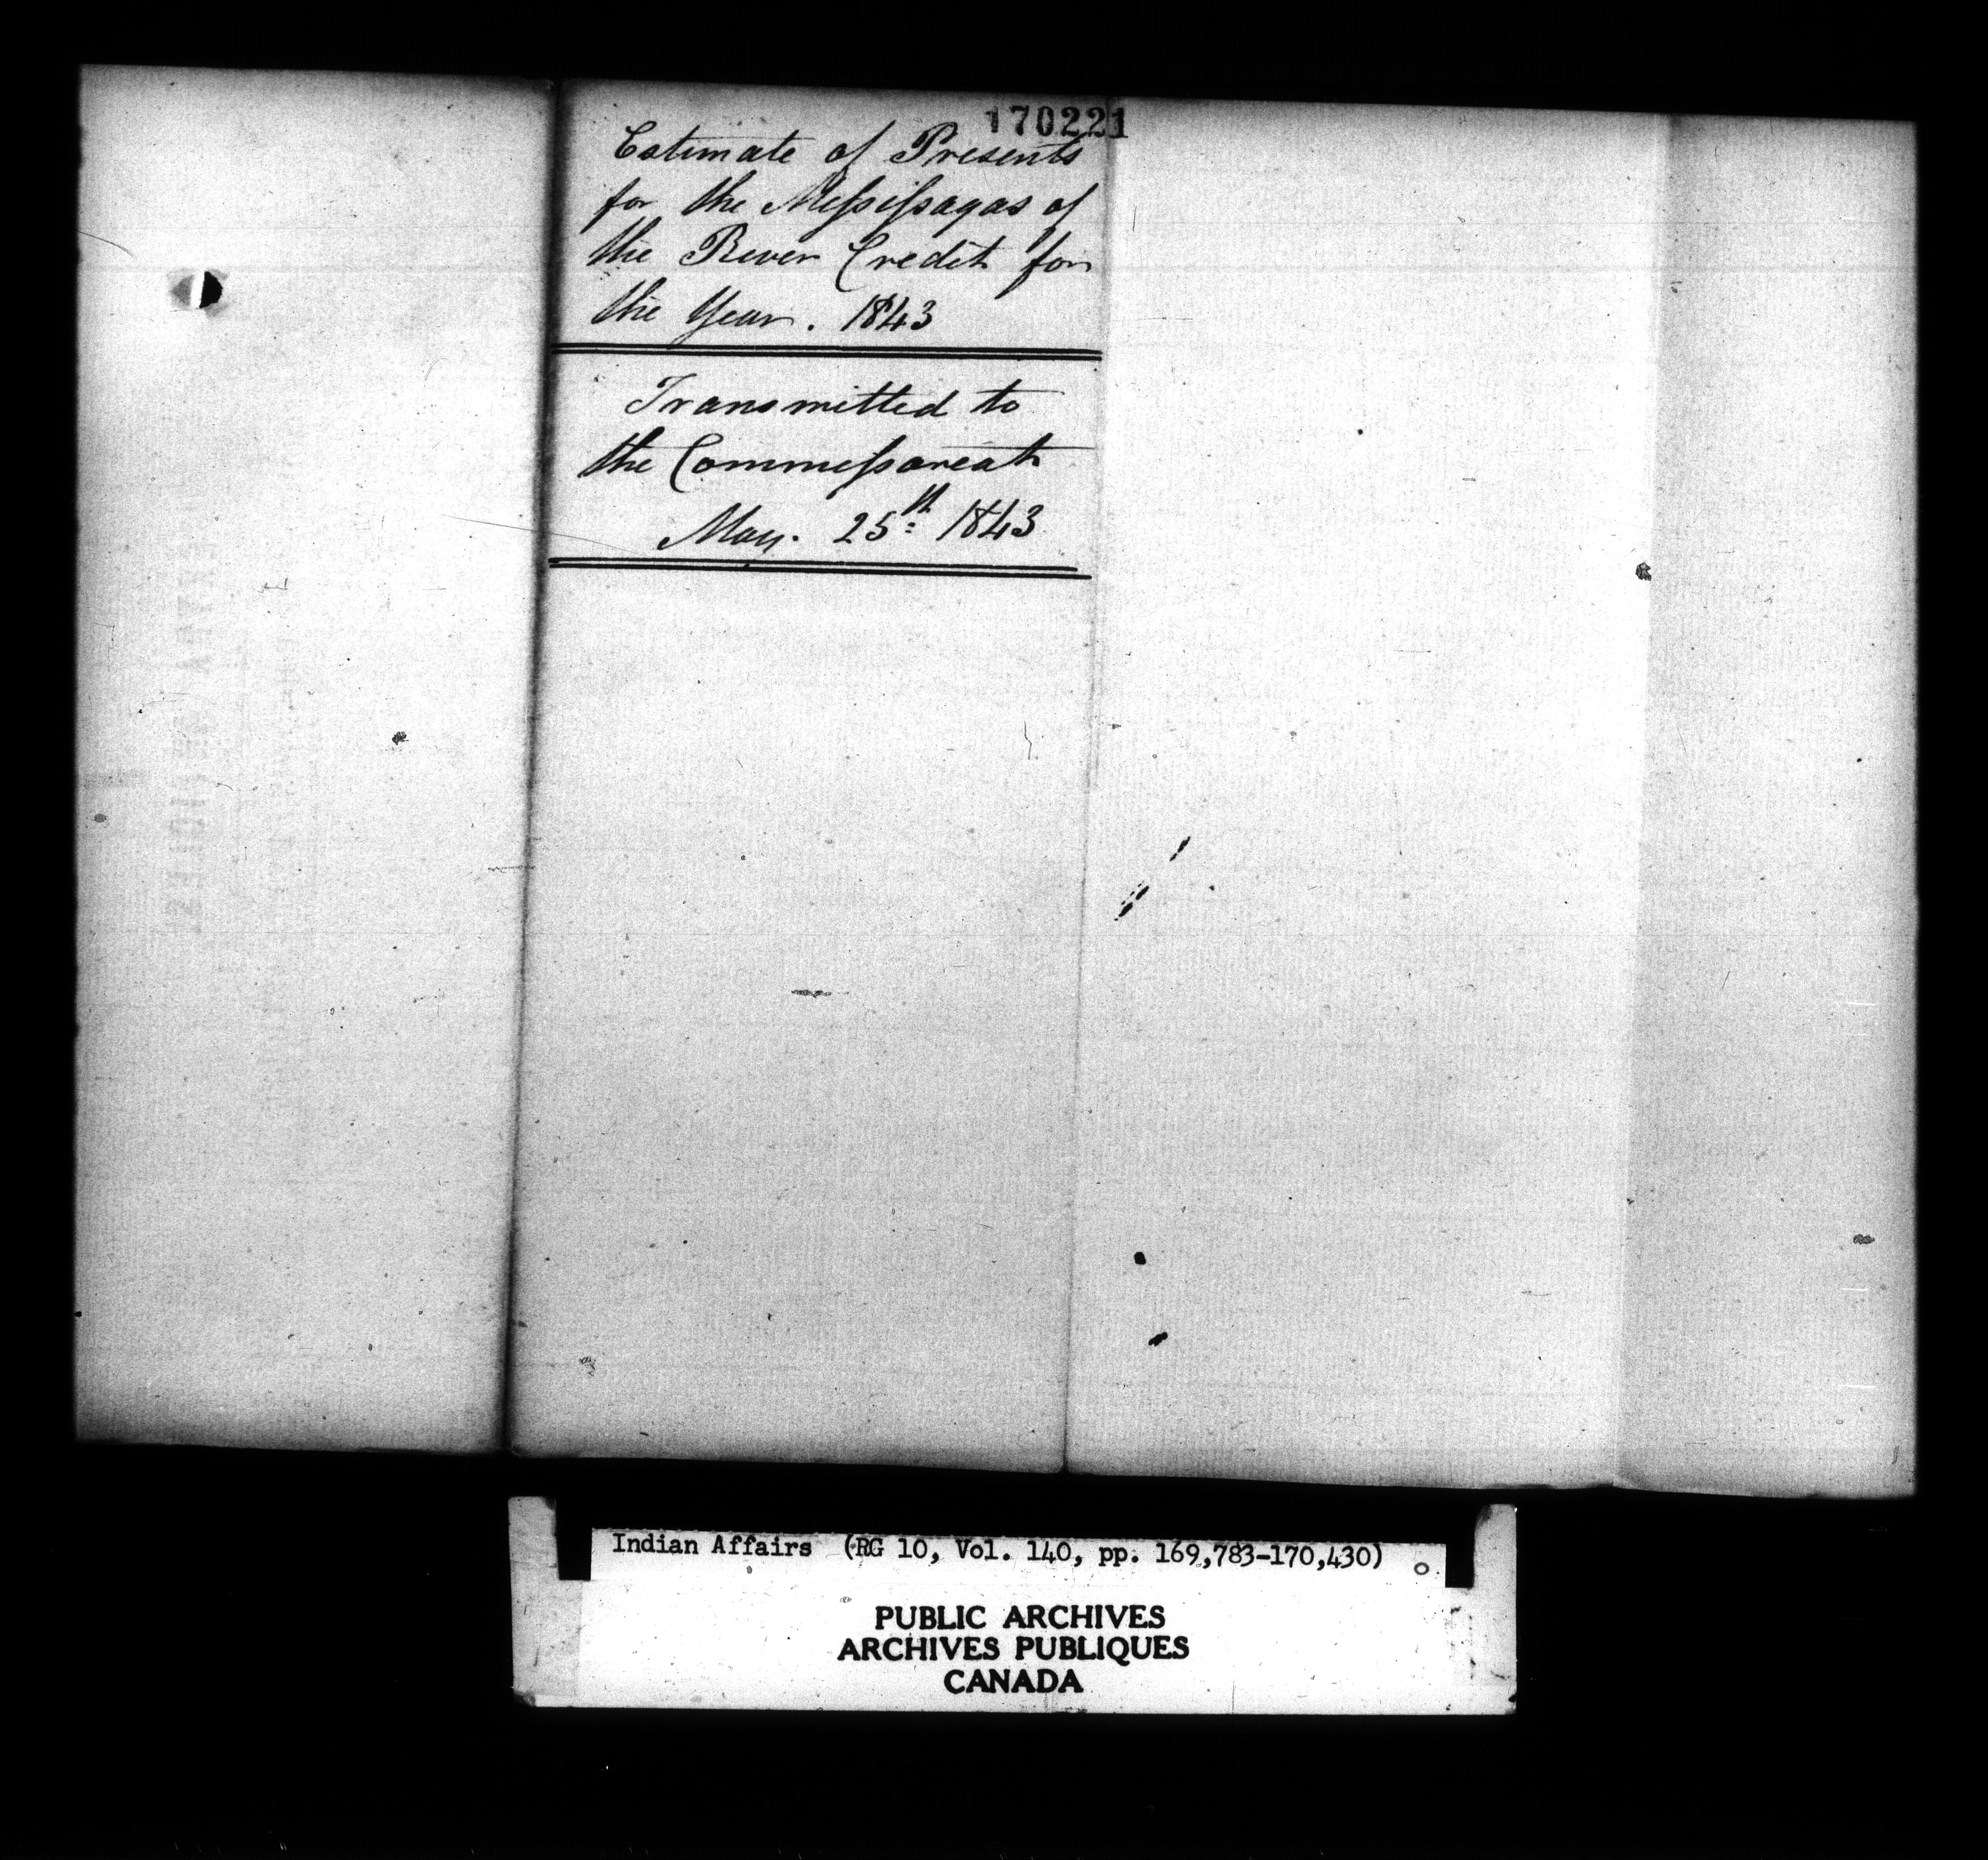 170221
Estimate of Presents
for the Messissagas of
the River Credit for
the Year. 1843
Transmitted to
the Commissareat
May. 25th 1843
Indian Affairs (RG 10, Vol. 140, pp. 169,783-170,430)
PUBLIC ARCHIVES
ARCHIVES PUBLIQUES
CANADA